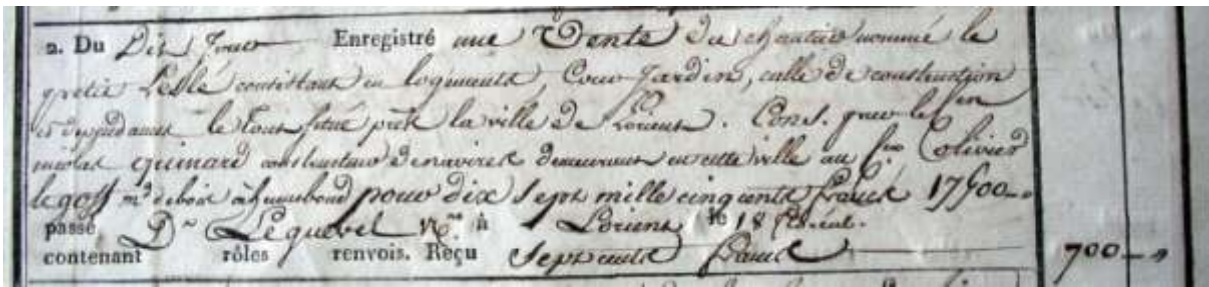 2. Du Dit Jour Enregistré une Vente du chantier nommé le
petit Leslé consistant en logements, Cour Jardin, calle de construction
et dependances le tout situé près la ville de Lorient. Cons. par le Cen
nicolas guinard constructeur de navires demeurant en cette ville au Cen Olivier
le goff md de bois à hennebond pour dix sept mille cinq cents francs 17500
passé Dt Lequevel Nre à Lorient le 18
contenant rôles renvois. Reçu Sept cents francs 700